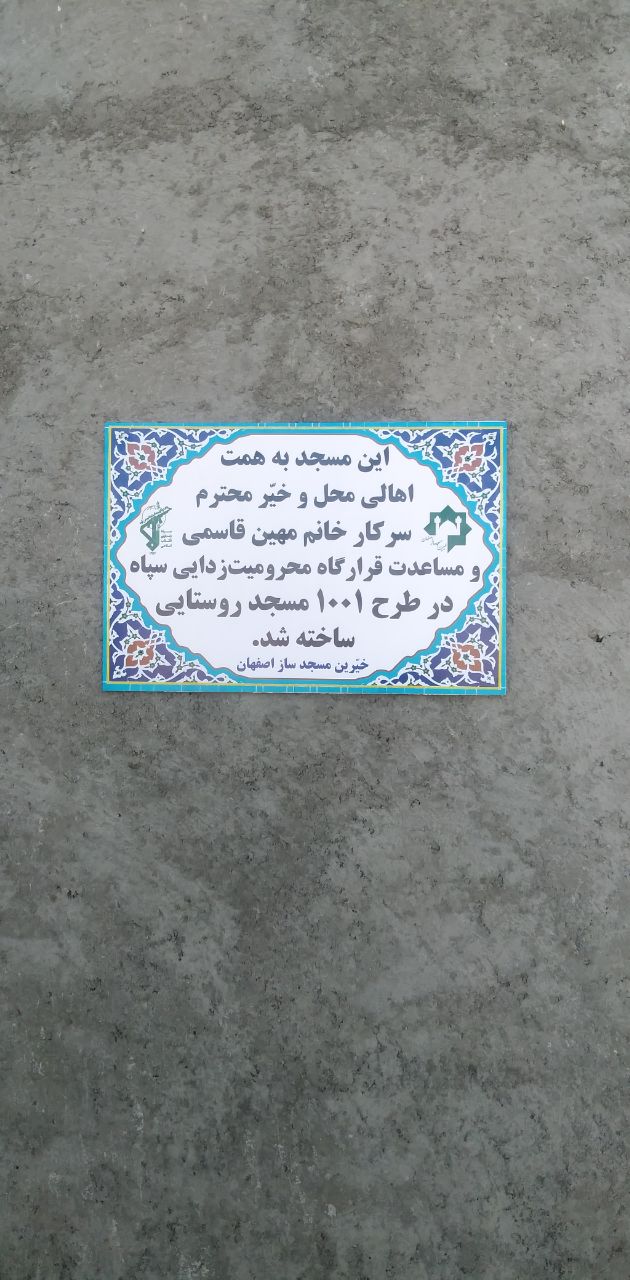 این مسجد به همت
اهالی محل و خیّر محترم
سرکار خانم مهین قاسمی
و مساعدت قرارگاه محرومیت‌زدایی سپاه
در طرح ۱۰۰۱ مسجد روستایی
ساخته شد.
خیّرین مسجد ساز اصفهان